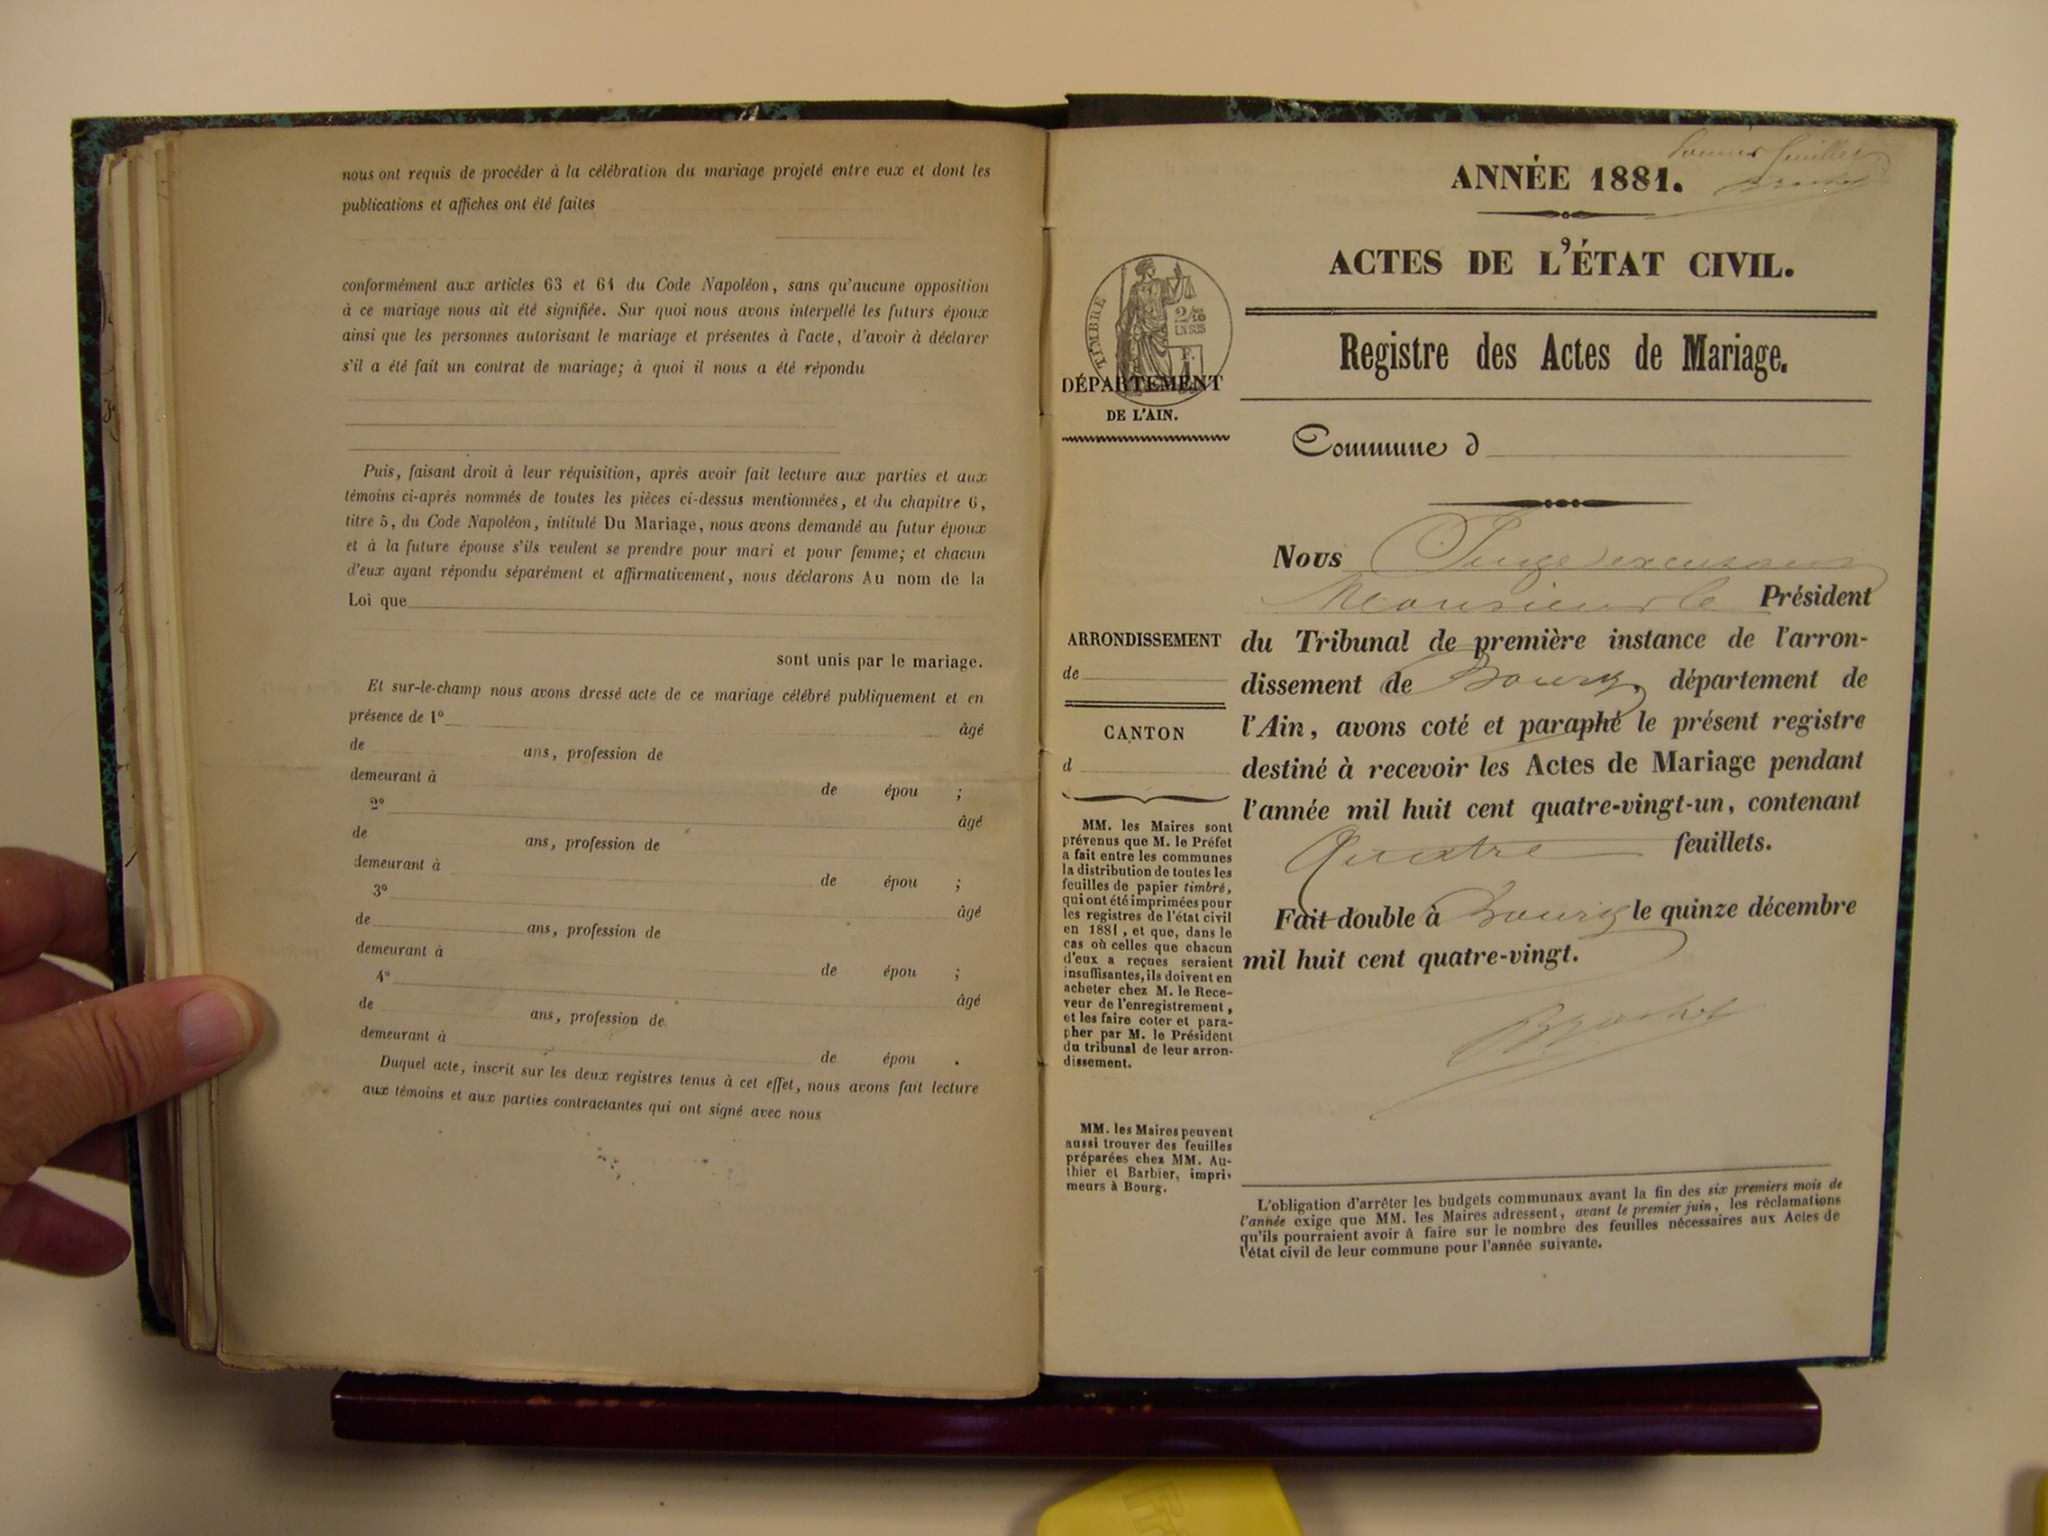 nous ont requis de procéder à la célébration du mariage projeté entre eux et dont les
publications et affiches ont été faites
conformément aux articles 63 et 64 du Code Napoléon, sans qu'aucune opposition
à ce mariage nous ait été signifiée. Sur quoi nous avons interpellé les futurs époux
ainsi que les personnes autorisant le mariage et présentes à l'acte, d'avoir à déclarer
s'il a été fait un contrat de mariage; à quoi il nous a été répondu
Puis, faisant droit à leur réquisition, après avoir fait lecture aux parties et aux
témoins ci-après nommés de toutes les pièces ci-dessus mentionnées, et du chapitre 6,
titre 5, du Code Napoléon, intitulé Du Mariage, nous avons demandé au futur époux
et à la future épouse s'ils veulent se prendre pour mari et pour femme; et chacun
d'eux ayant répondu séparément et affirmativement, nous déclarons Au nom de la
Loi que
sont unis par le mariage.
Et sur-le-champ nous avons dressé acte de ce mariage célébré publiquement et en
présence de 1º âgé
de ans, profession de
demeurant à de épou ;
2º âgé
de ans, profession de
demeurant à de épou ;
3º âgé
de ans, profession de
demeurant à de épou ;
4º âgé
de ans, profession de
demeurant à de épou .
Duquel acte, inscrit sur les deux registres tenus à cet effet, nous avons fait lecture
aux témoins et aux parties contractantes qui ont signé avec nous
feuillet
ANNÉE 1881.
ACTES DE L'ÉTAT CIVIL.
Registre des Actes de Mariage.
TIMBRE
DÉPARTEMENT
DE L'AIN.
Commune d
Nous Juge excusant
Monsieur le Président
du Tribunal de première instance de l'arron-
dissement de Bourg, département de
l'Ain, avons coté et paraphé le présent registre
destiné à recevoir les Actes de Mariage pendant
l'année mil huit cent quatre-vingt-un, contenant
Quatre feuillets.
Fait double à Bourg le quinze décembre
mil huit cent quatre-vingt.
ARRONDISSEMENT
de
CANTON
d
MM. les Maires sont
prévenus que M. le Préfet
a fait entre les communes
la distribution de toutes les
feuilles de papier timbré,
qui ont été imprimées pour
les registres de l'état civil
en 1881, et que, dans le
cas où celles que chacun
d'eux a reçues seraient
insuffisantes, ils doivent en
acheter chez M. le Rece-
veur de l'enregistrement,
et les faire coter et para-
pher par M. le Président
du tribunal de leur arron-
dissement.
MM. les Maires peuvent
aussi trouver des feuilles
préparées chez MM. Au-
thier et Barbier, impri-
meurs à Bourg.
L'obligation d'arrêter les budgets communaux avant la fin des six premiers mois de
l'année exige que MM. les Maires adressent, avant le premier juin, les réclamations
qu'ils pourraient avoir à faire sur le nombre des feuilles nécessaires aux Actes de
l'état civil de leur commune pour l'année suivante.